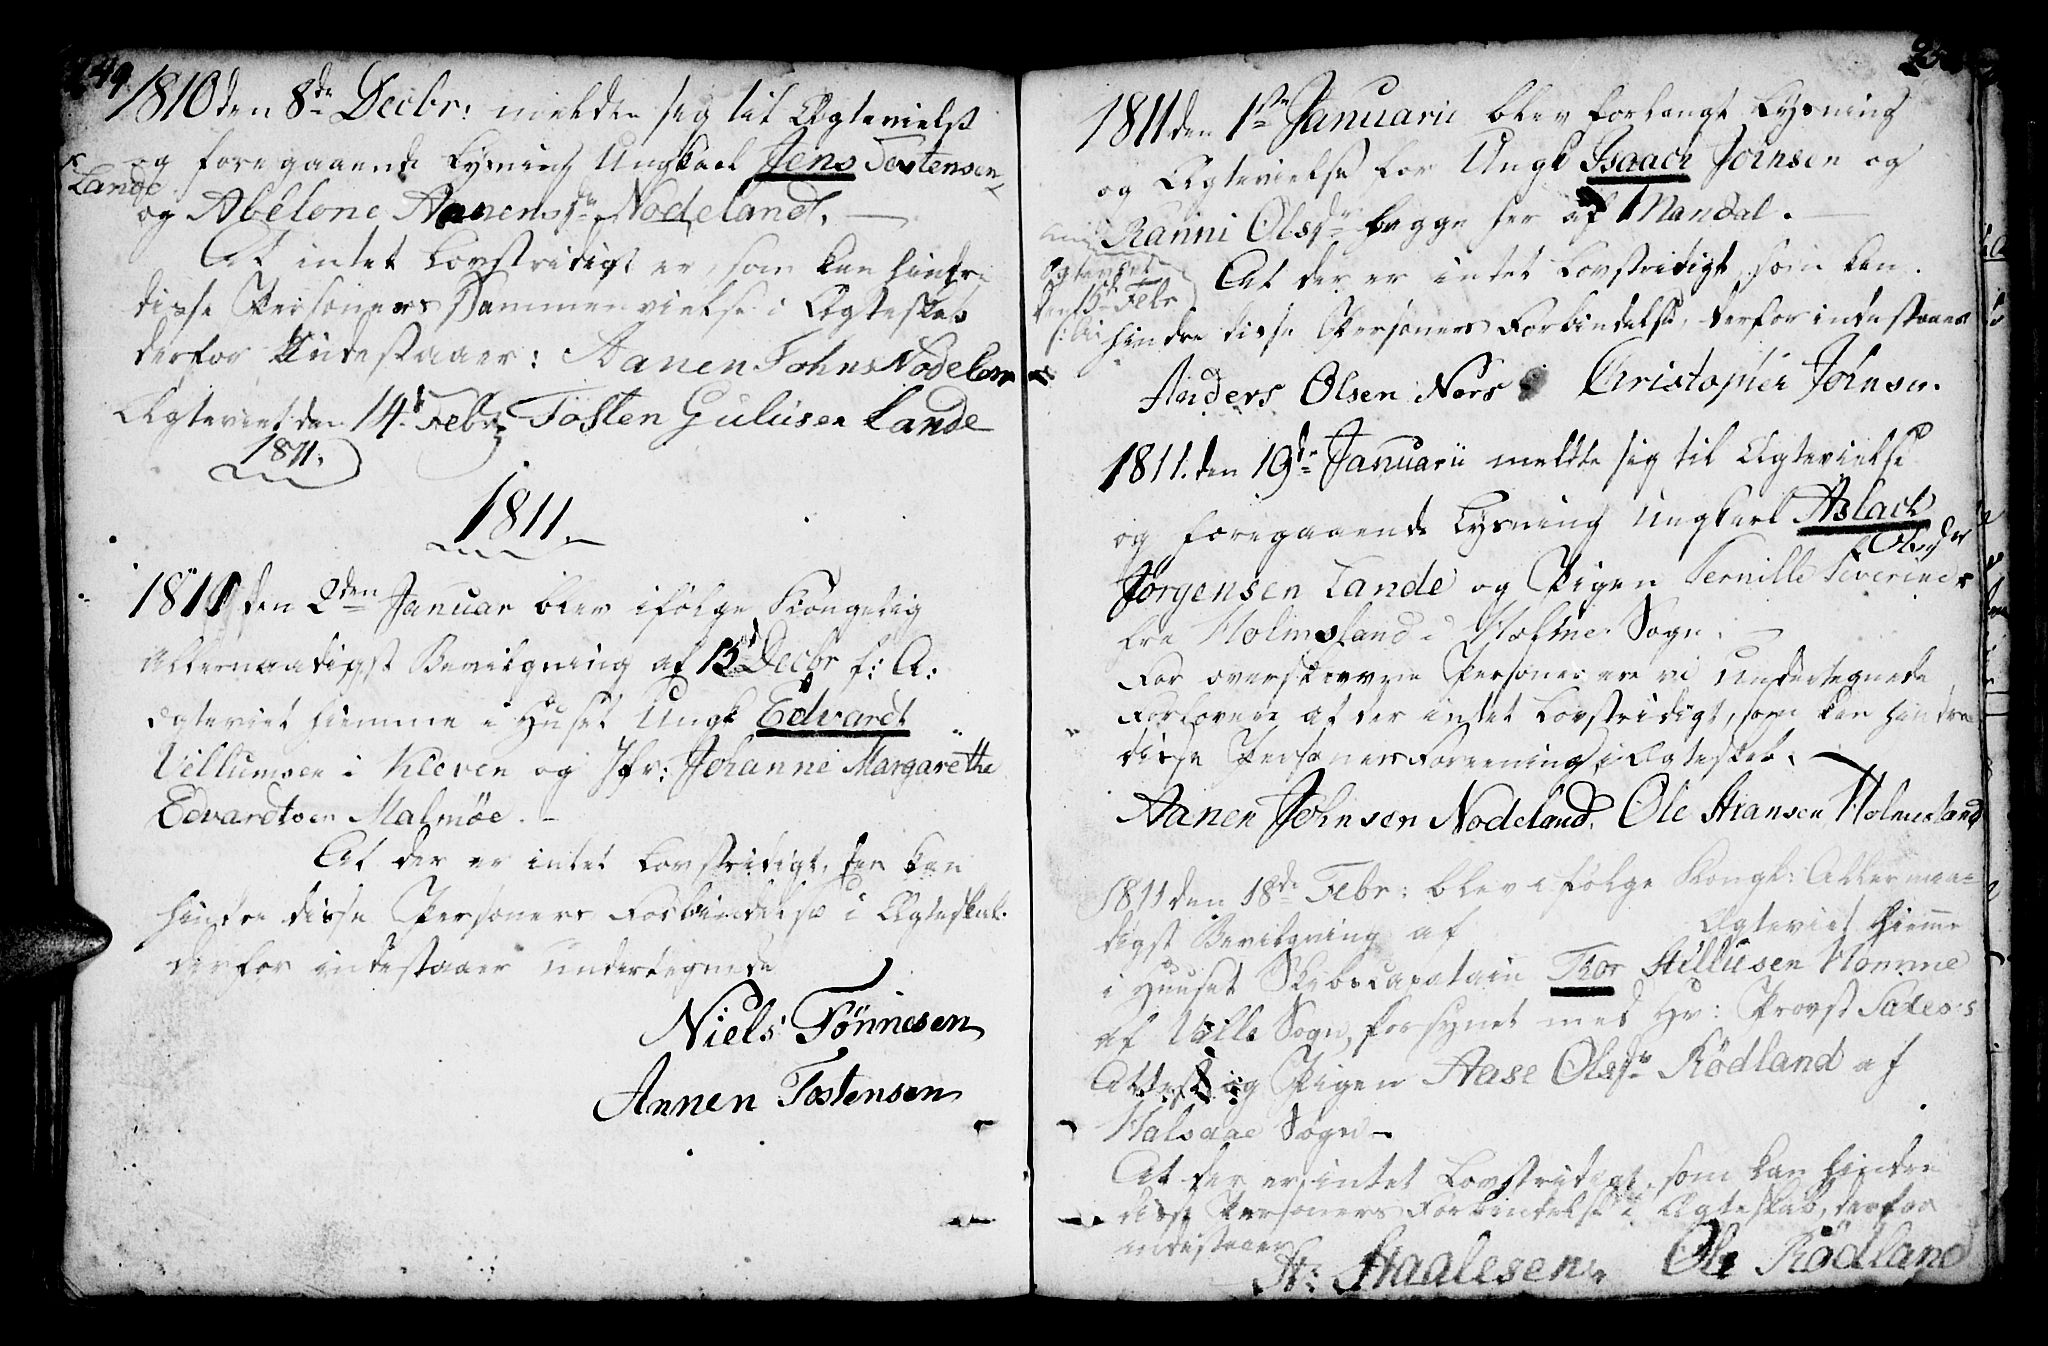 249.
1810 den 8de Decbr: meldte sig til Ægtevielse
og foregaaende Lysning Ungkarl Jens Tostensen
x Lande
og Abelone Aanensdr Nodeland. —
At intet Lovstridigt er, som kan hindre
disse Personers Sammenvielse i Ægteskab
derfor Indestaaer: Aanen Johns Nodeland
Ægteviet den 14d Febr Tosten Gulusen Lande
1811.
1811.
1811 den 2den Januar blev ifölge Kongelig
Allernaadigst Bevilgning af 15d Decbr f: A:
ægteviet hiemme i Huset Ungk Edvardt
Villumsen i Kleven og Jfr: Johanne Margarethe
Edvardtsen Malmöe. —
At der er intet Lovstridigt, der kan
hindre disse Personers Forbindelse i Ægteskab.
derfor indestaaer undertegnede
Niels Tönnesen
Aanen Tostensen
1811 den 1ste Januarii blev forlangt Lysning
og Ægtevielse for Ungk Isaach Johnsen og
Ranni Olsdr begge her af Mandal. —
Ægteviet
den 15d Febr
At der er intet Lovstridigt, som kan
hindre disse Personers Forbindelse, derfor indestaaer
Anders Olsen Nors Christopher Johnsen.
1811. den 19de Januarii meldte sig til Ægtevielse
og foregaaende Lysning Ungkarl Aslach
x Olsdr
Jörgensen Lande og Pigen Pernille Severine x
fra Holmsland i Holme Sogn. —
For overskrevne Personer ere vi undertegnede
Forlovere at der intet Lovstridigt, som kan hindre
disse Personers Foreening i Ægteskab. —
Aanen Johnsen Nodeland. Ole Hansen Holmesland
1811 den 18de Febr: blev i fölge Kongl: Allernaa-
digst Bevilgning af Ægteviet hiemme
i Huuset Skibscapatain Tor Stillufsen Homme
af Valle Sogn, forsynet med Hr: Provst
Attest og Pigen Aase Olsdr Rödland af
Halsaae Sogn —
At der er intet Lovstridigt, som kan hindre
disse Personers Forbindelse i Ægteskab, derfor
indestaaer
St: Staalesen. Ole Rödland